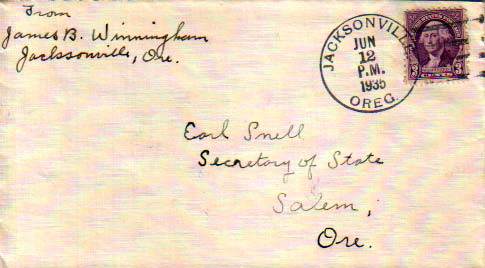 From
James B. Winningham
Jacksonville, Ore.
JACKSONVILLE
JUN
12
P.M.
1935
OREG.
3 3
Earl Snell
Secretary of State
Salem,
Ore.